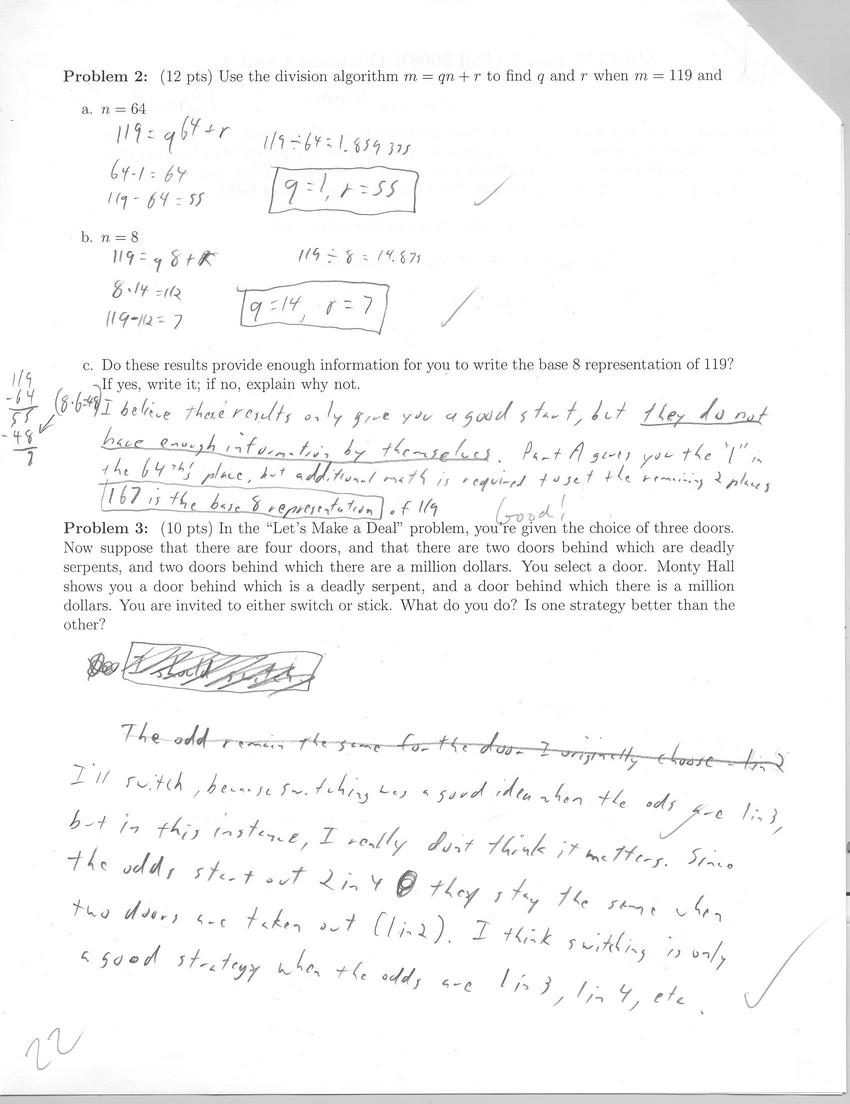 Problem 2: (12 pts) Use the division algorithm m = qn + r to find q and r when m = 119 and
a. n = 64
119 = q64 + r
119 ÷ 64 = 1.859375
64·1 = 64
119 - 64 = 55
q = 1, r = 55
b. n = 8
119 = q8 + r
119 ÷ 8 = 14.875
8·14 = 112
119-112 = 7
q = 14, r = 7
c. Do these results provide enough information for you to write the base 8 representation of 119?
If yes, write it; if no, explain why not.
119
-64
55
-48
7
(8·6=48)
I believe these results only give you a good start, but they do not
have enough information by themselves. Part A gives you the "1" in
the 64ths place, but additional math is required to get the remaining 2 places
167 is the base 8 representation of 119
Good!
Problem 3: (10 pts) In the “Let’s Make a Deal” problem, you’re given the choice of three doors.
Now suppose that there are four doors, and that there are two doors behind which are deadly
serpents, and two doors behind which there are a million dollars. You select a door. Monty Hall
shows you a door behind which is a deadly serpent, and a door behind which there is a million
dollars. You are invited to either switch or stick. What do you do? Is one strategy better than the
other?
I should switch
The odd remain the same for the door I originally choose - 1 in 2
I'll switch, because switching was a good idea when the ods are 1 in 3,
but in this instance, I really don't think it matters. Since
the odds start out 2 in 4 they stay the same when
two doors are taken out (1 in 2). I think switching is only
a good strategy when the odds are 1 in 3, 1 in 4, etc.
22